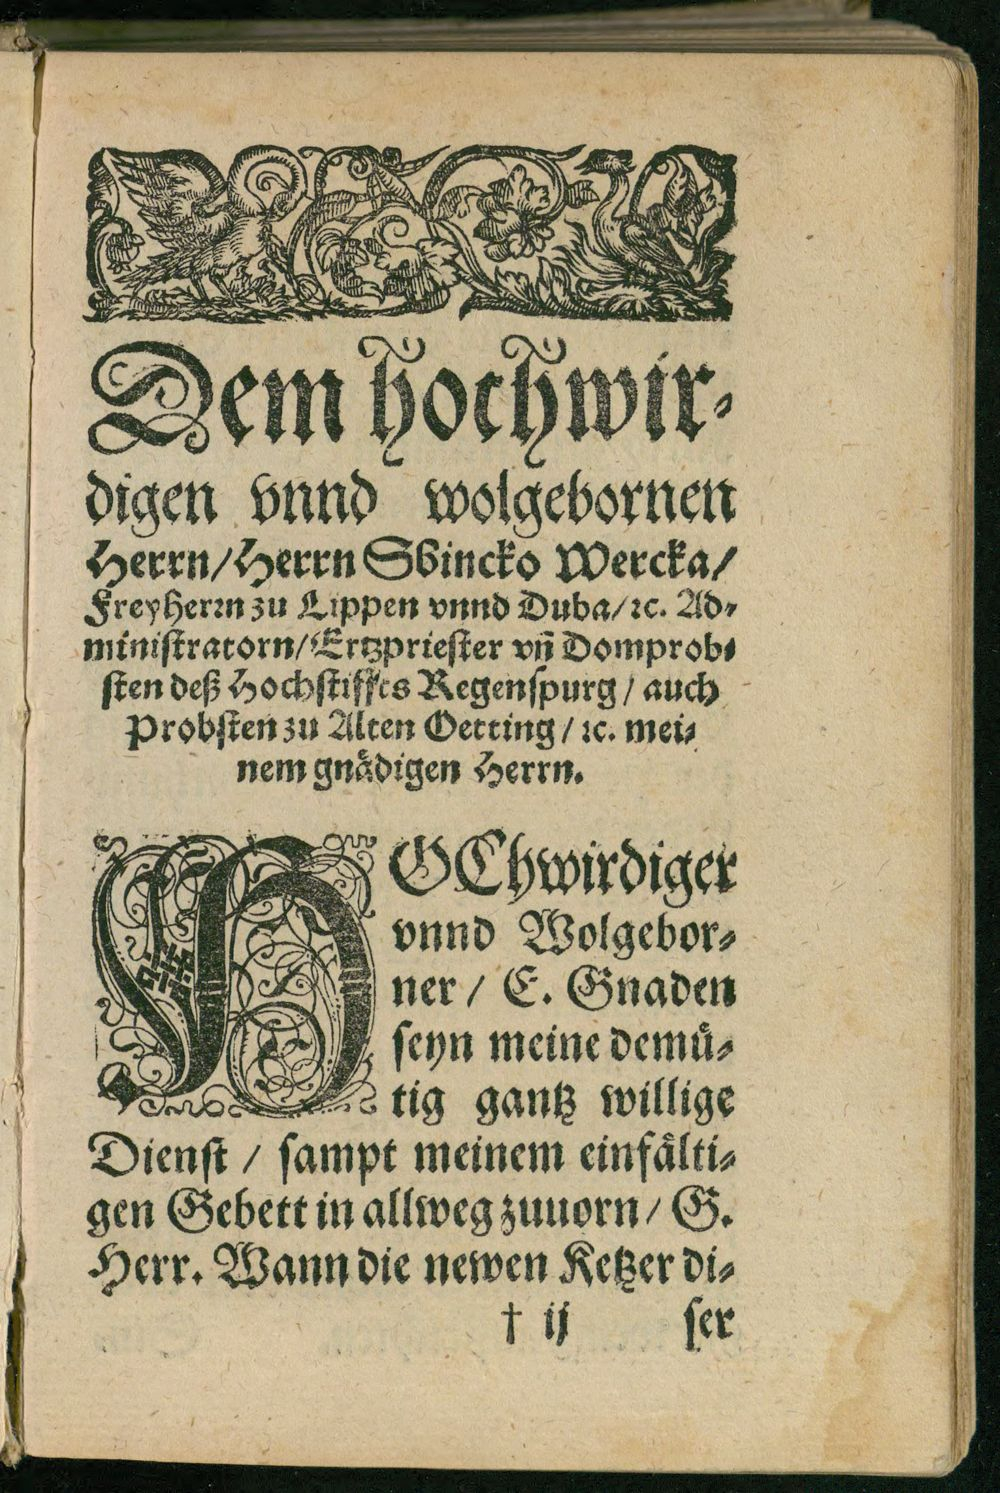 Dem hochwir-
digen vnnd wolgebornen
Herrn/Herrn Sbincko Wercka/
Freyherrn zu Lippen vnnd Duba/ꝛc. Ad-
ministratorn/Ertzpriester vn̄ Domprob-
sten deß Hochstifftes Regenspurg/ auch
Probsten zu Alten Oetting/ ꝛc. mei-
nem gnaͤdigen Herrn.
HOChwirdiger
vnnd Wolgebor-
ner / E. Gnaden
seyn meine demuͤ-
tig gantz willige
Dienst / sampt meinem einfaͤlti-
gen Gebett in allweg zuuorn/ G.
Herr. Wann die newen Ketzer di-
† ij ser